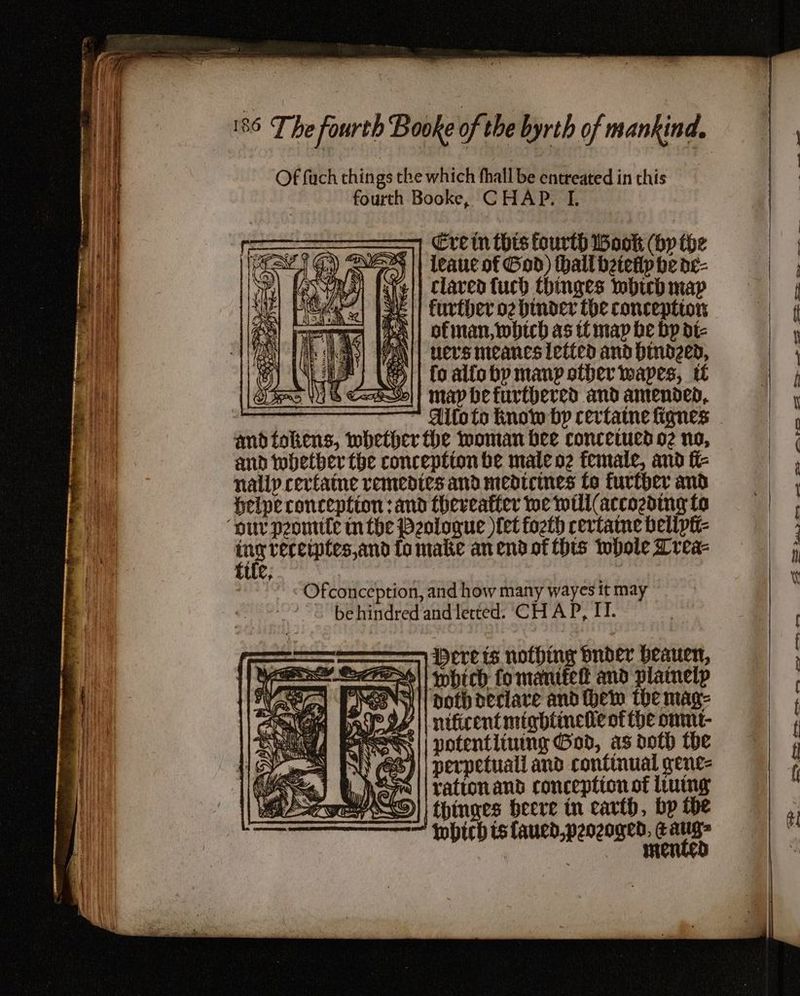 186 The fourth Booke of the byrth of mankind.
Of ſuch things the which ſhall be entreated in this
fourth Booke, CHAP. I.
HEre in this fourth Book (by the
leaue of God) ſhall briefly be de-
clared ſuch thinges which may
further or hinder the conception
of man, which as it may be by di-
uers meanes letted and hindred,
ſo alſo by many other wayes, it
may be furthered and amended.
Alſo to know by certaine ſignes
and tokens, whether the woman bee conceiued or no,
and whether the conception be male or female, and fi-
nally certaine remedies and medicines to further and
helpe conception: and thereafter we will (according to
our promiſe in the Prologue) ſet forth certaine bellyfi-
ing receiptes, and ſo make an end of this whole Trea-
tiſe.
Of conception, and how many wayes it may
be hindred and letted. CHAP, II.
THere is nothing vnder heauen,
which ſo manifeſt and plainely
doth declare and ſhew the mag-
nificent mightineſſe of the omni-
potent liuing God, as doth the
perpetuall and continual gene-
ration and conception of liuing
thinges heere in earth, by the
which is ſaued, proroged, & aug-
mented